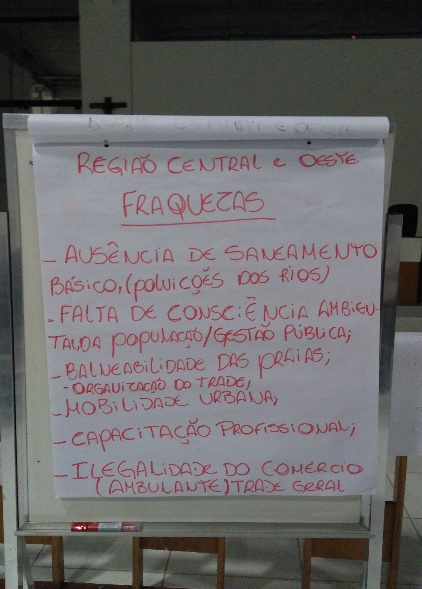 REGIAÕ CENTRAL e OESTE
FRAQUEZAS
- AUSÊNCIA DE SANEAMENTO
BÁSICO, (POLUIÇÕES DOS RIOS)
- FALTA DE CONSCIÊNCIA AMBIEN-
TAL DA POPULAÇÃO/GESTÃO PÚBLICA;
- BALNEABILIDADE DAS PRAIAS;
- ORGANIZAÇÃO DO TRADE,
- MOBILIDADE URBANA;
- CAPACITAÇÃO PROFISSIONAL;
- ILEGALIDADE DO COMÉRCIO
(AMBULANTE) TRADE GERAL